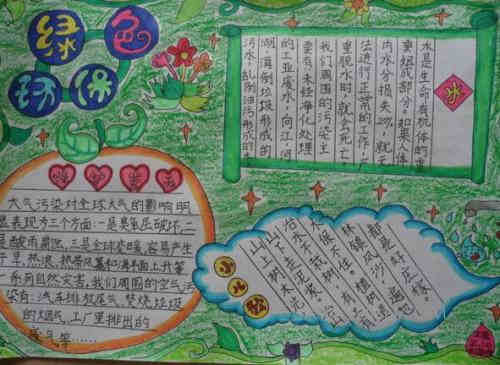 绿色
环保
水
水是生命有机体的重
要组成部分,如果人体
内水分损失20%,就无
法进行正常的工作,严
重脱水时,就会死亡,
我们周围的污染主
要有未经净化处理
的工业废水,向江,河
湖,海倒垃圾形成的
污水,乱倒油污形成的
大气污染对全球大气的影响明
显表现为三个方面:一是臭氧层破坏,二
是酸雨腐蚀,三是全球变暖,容易产生
干旱,热浪,热带风暴和海平面上升等
一系列自然灾害,我们周围的空气污
染有:汽车排放尾气,焚烧垃圾
的烟气,工厂里排出的
废气等……
小儿歌
都是好庄稼。